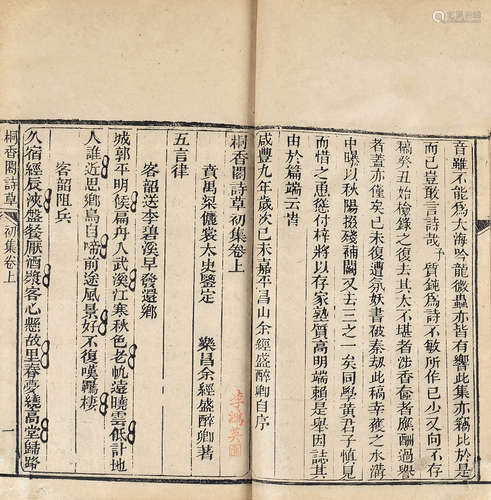 音雖不能為大海吟龍微蟲亦皆有響此集亦竊比於是
而已豈敢言詩哉予質鈍為詩不敏所作已少又向不存
稿癸丑始檢錄之復去其太不堪者涉香奩者應酬過譽
者蓋亦僅矣已未復遭氛妖書被秦劫此稿幸獲之水溝
中曝以秋陽掇殘補闕又去三之一矣同學黃君子慎見
而惜之慫慂付梓將以存家塾質高明端賴是舉因誌其
由於篇端云旹
咸豐九年歲次己未嘉平昌山余經盛醉卿自序
桐香閣詩草初集卷上
賁禺桒儷裳太史鑒定
樂昌余經盛醉卿著
五言律
客韶送李碧溪早發還鄉
城郭平明候扁舟入武溪江寒秋色老帆遠曉雲低計地
人誰近思鄉鳥自啼前途風景好不復嘆羈棲
客韶阻兵
久宿經辰浹盤餐厭酒漿客心懸故里春夢繞高堂歸路
桐香閣詩草
初集卷上
一